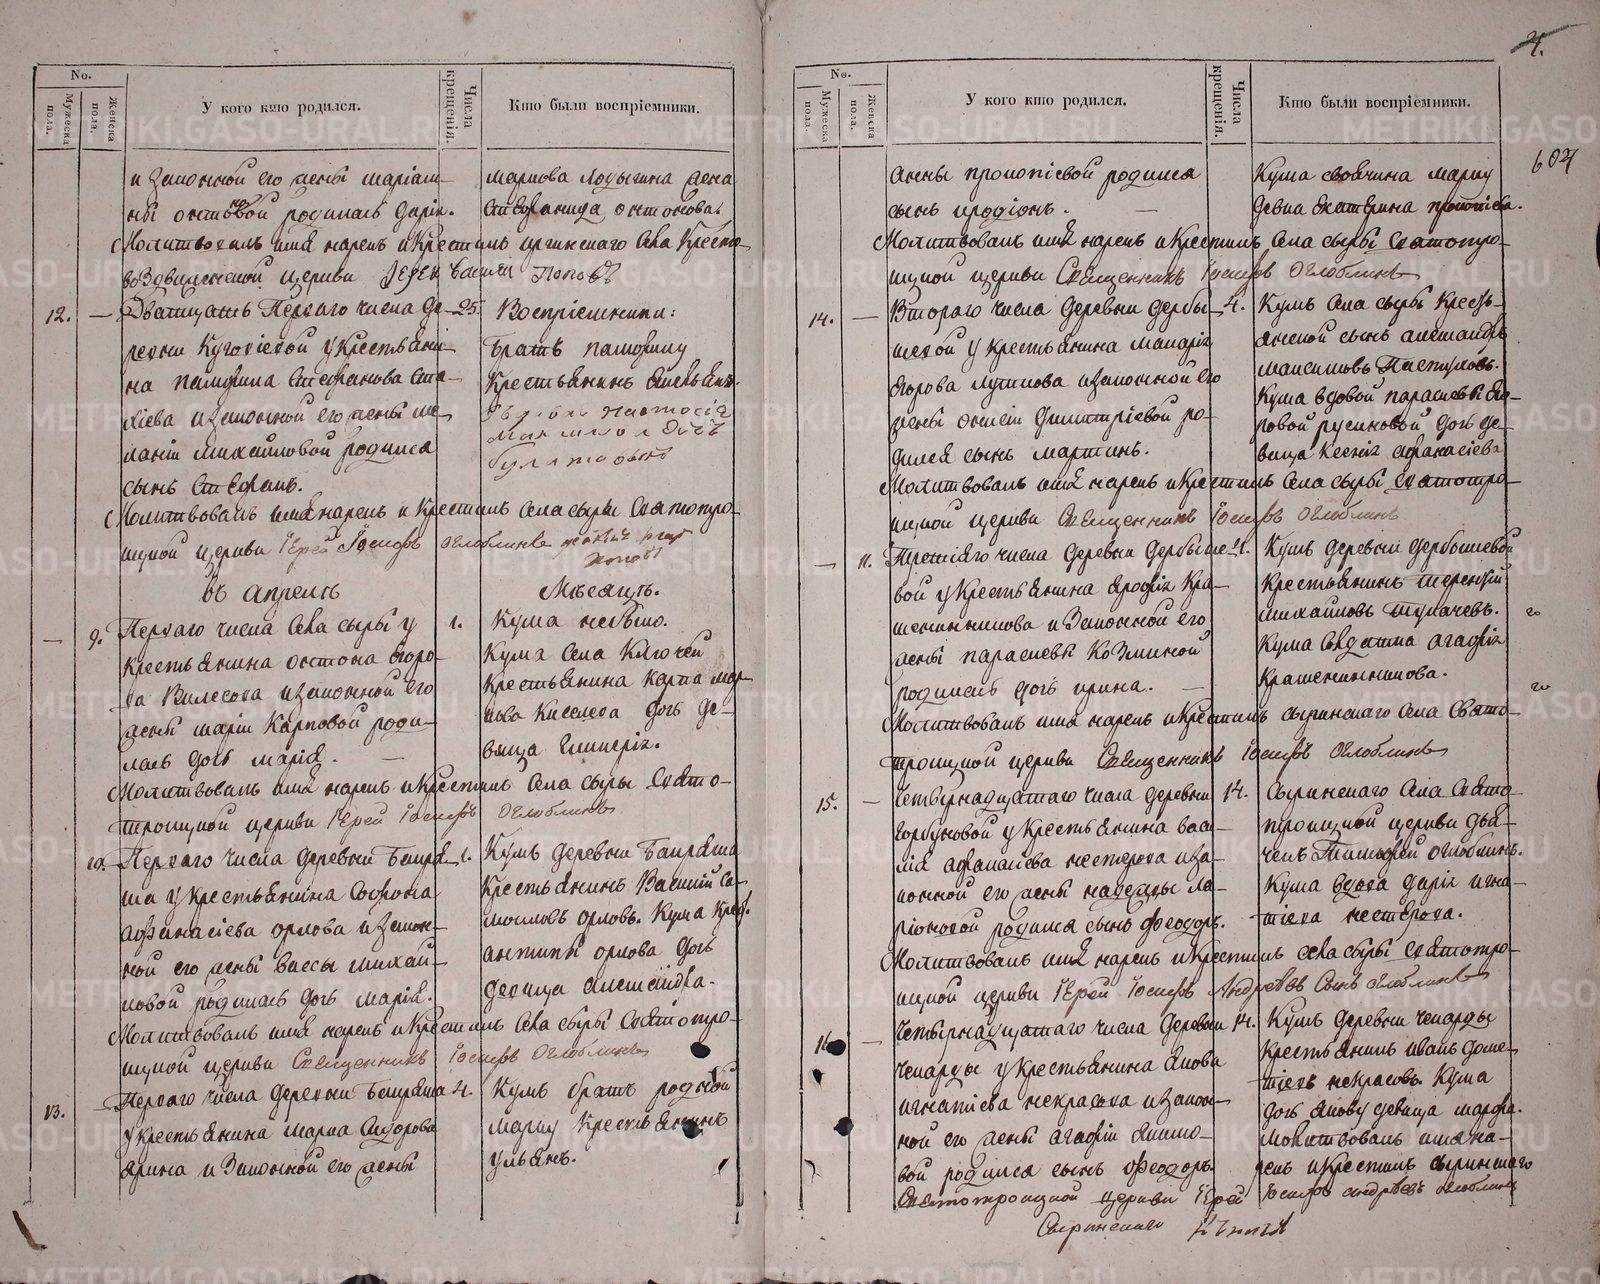 No.
Мужеска пола.
Женска пола.
У кого кто родился.
Числа крещенія.
Кто были воспріемники.
и законной его жены маріам-
ны родилась дарія.
Молитвовалъ имя нарекъ и Крестилъ села Кресто-
воздвиженской церкви Василій Поповъ
12. — Двадцать Перваго числа де- 25. Воспріемники:
ревни у Крестьяни-
на памфила Стефанова
и законной его жены ме-
ланіи михайловой родился
сынъ Стефанъ.
братъ памфилу
Крестьянинъ
Молитвовалъ имя нарекъ и Крестилъ села сыры Святотро-
ицкой церкви Іерей Іосифъ Оглоблинъ
въ апрелѣ Мѣсяцѣ.
— 9. Перваго числа села сыры у 1.
крестьянина антона егоро-
ва Вилесова и законной его
жены маріи Карповой роди-
лась дочь марія. —
Кума села Ключей
Крестьянина карпа мар-
кова Киселева дочь де-
вица Гликерія.
Молитвовалъ имя нарекъ и Крестилъ села сыры Свято-
троицкой церкви Іерей Іосифъ Оглоблинъ
10. Перваго числа деревни Баиря- 1.
ка у Крестьянина Софрона
афанасіева орлова и закон-
ной его жены васы михай-
ловой родилась дочь марія.
Кумъ деревни Баиряка
Крестьянинъ Василій Са-
мойловъ орловъ. Кума Крес.
антипы орлова дочь
девица александра.
Молитвовалъ имя нарекъ и Крестилъ села сыры Святотро-
ицкой церкви Священникъ Іосифъ Оглоблинъ
13. — Перваго числа деревни Баиряка 4.
у Крестьянина марка Сидорова
ярина и законной его жены
Кумъ братъ родной
марку Крестьянинъ
ульянъ.
4.
604
No.
Мужеска пола.
Женска пола.
У кого кто родился.
Числа крещенія.
Кто были воспріемники.
анны прокопіевой родился
сынъ иродіонъ. —
Кума своячина марку
девка екатерина прокопіева.
Молитвовалъ имя нарекъ и Крестилъ села сыры Святотро-
ицкой церкви Священникъ Іосифъ Оглоблинъ
14. — Втораго числа деревни дербы- 4.
шевой у крестьянина макарія
егорова лупинова и законной его
жены димитріевой ро-
дился сынъ мартинъ.
Кумъ села сыры Кресть-
янской сынъ александръ
максимовъ Пастуховъ.
Кума вдовой параскевы
русиновой дочь де-
вица Ксенія афанасіева
Молитвовалъ имя нарекъ и Крестилъ села сыры Святотро-
ицкой церкви Священникъ Іосифъ Оглоблинъ
— 11. Третьяго числа деревни дербыше- 4.
вой у Крестьянина ерофія Кра-
шенинникова и законной его
жены параскевы Козминой
родилась дочь ирина. —
Кумъ деревни дербышевой
Крестьянинъ терентій
михайловъ тупачевъ.
Кума Солдатка агафія
Крашенинникова.
Молитвовалъ имя нарекъ и Крестилъ сыринскаго села Свято-
троицкой церкви Священникъ Іосифъ Оглоблинъ
15. — Четырнадцатаго числа деревни 14.
горбуновой у Крестьянина васи-
лія афанасіева нестерова и за-
конной его жены надежды ла-
ріоновой родился сынъ феодоръ.
Сыринскаго села Свято
троицкой церкви дья-
чекъ Тимофей оглоблинъ.
Кума вдова дарія игна-
тіева нестерова.
Молитвовалъ имя нарекъ и Крестилъ села сыры Святотро-
ицкой церкви Іерей Іосифъ Андреевъ Сынъ оглоблинъ
16. — Четырнадцатаго числа деревни 14.
чекарды у Крестьянина якова
игнатіева некрасова и закон-
ной его жены агафіи
родился сынъ феодоръ.
Кумъ деревни чекарды
Крестьянинъ иванъ доме-
тіевъ некрасовъ. Кума
дочь якову девица марфа.
Молитвовалъ имя на-
рекъ и Крестилъ сыринскаго
Святотроицкой церкви Іерей Іосифъ андреевъ оглоблинъ
Сыринскаго
METRIKI.GASO-URAL.RU